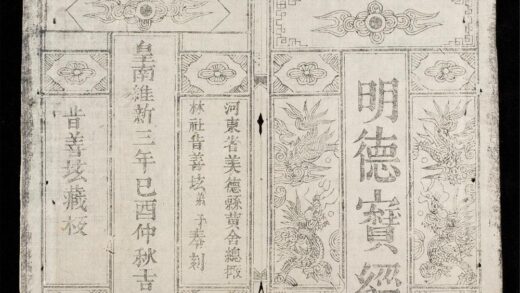 明德寶經
河東省美德縣黃舍總
林社善坛弟子奉刻
皇南維新三年己酉仲秋吉
善坛藏板